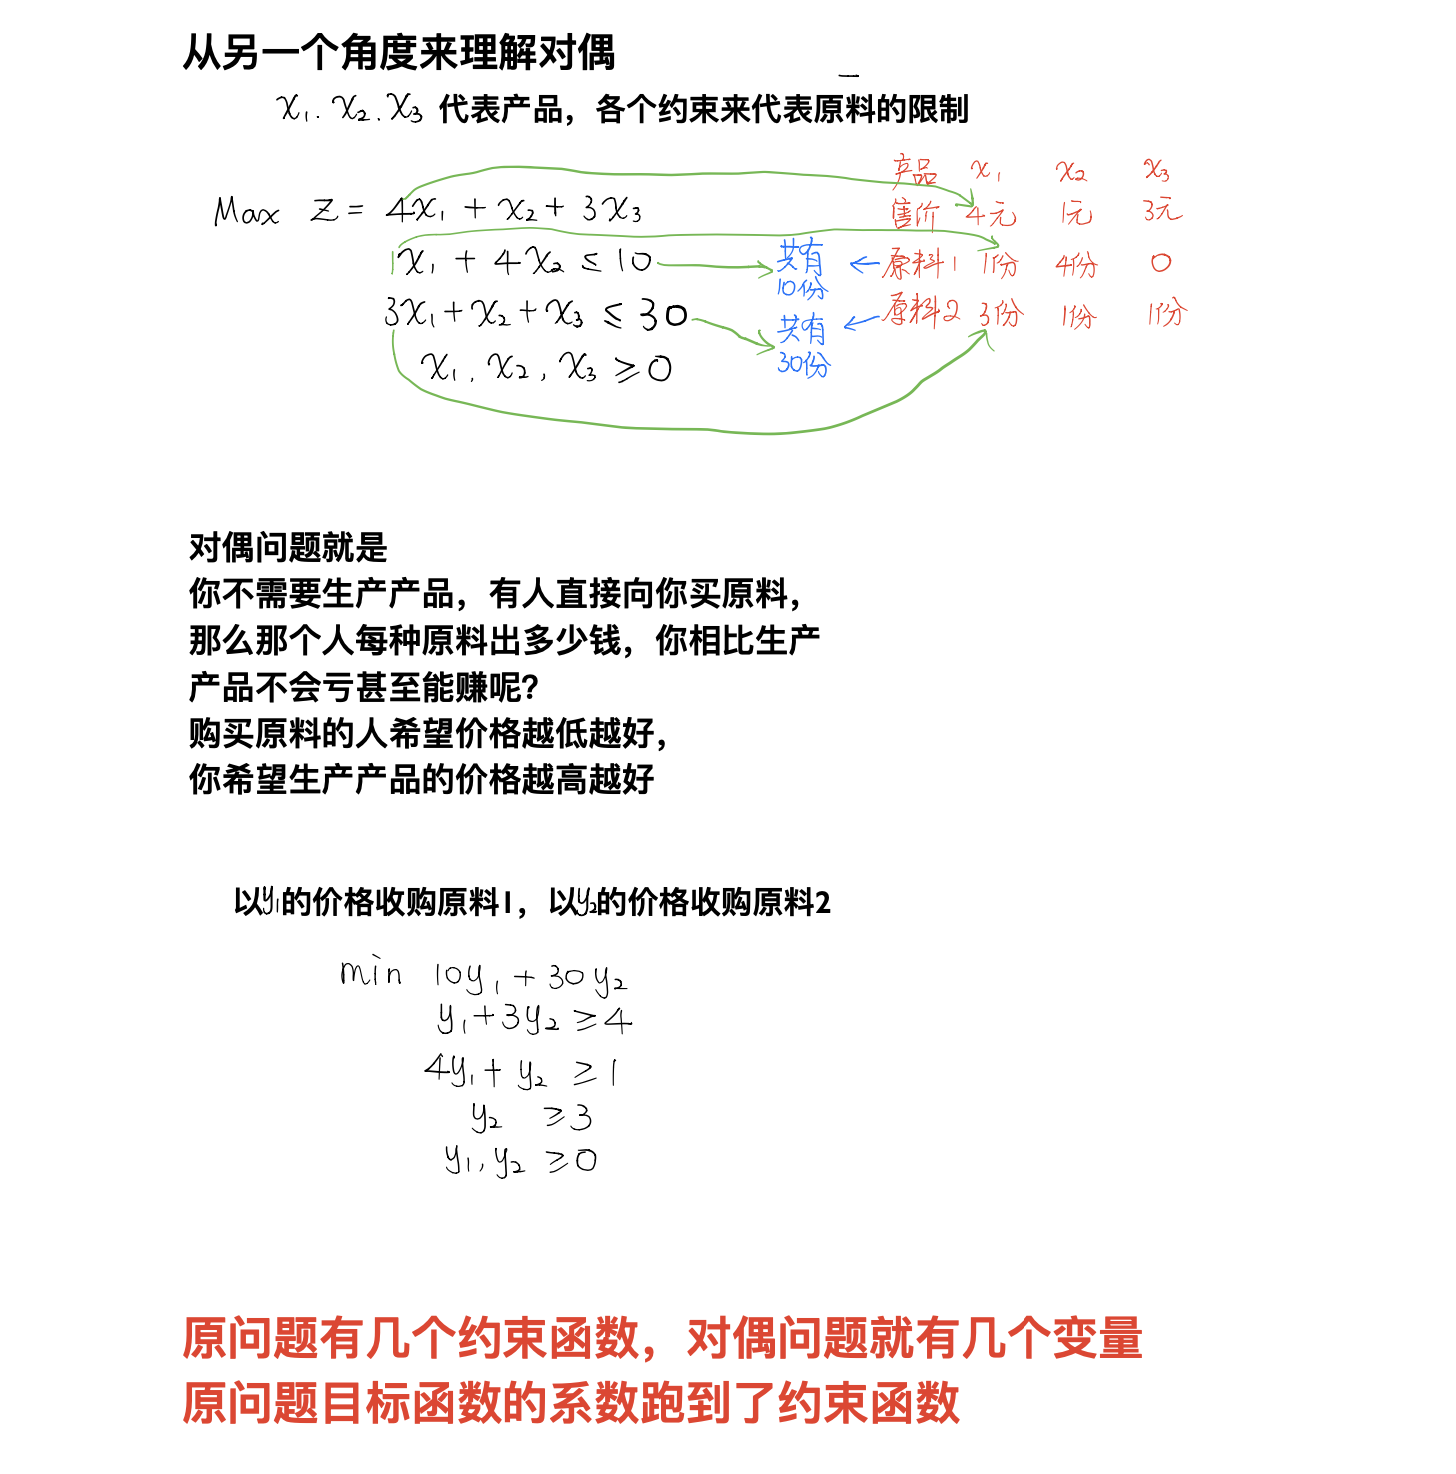 从另一个角度来理解对偶
x₁. x₂. x₃ 代表产品，各个约束来代表原料的限制
产品 x₁ x₂ x₃
Max Z = 4x₁ + x₂ + 3x₃
售价 4元 1元 3元
1x₁ + 4x₂ ≤ 10
共有
10份
原料1 1份 4份 0
3x₁ + x₂ + x₃ ≤ 30
共有
30份
原料2 3份 1份 1份
x₁, x₂, x₃ ≥ 0
对偶问题就是
你不需要生产产品，有人直接向你买原料，
那么那个人每种原料出多少钱，你相比生产
产品不会亏甚至能赚呢？
购买原料的人希望价格越低越好，
你希望生产产品的价格越高越好
以y₁的价格收购原料1，以y₂的价格收购原料2
min 10y₁ + 30y₂
y₁ + 3y₂ ≥ 4
4y₁ + y₂ ≥ 1
y₂ ≥ 3
y₁, y₂ ≥ 0
原问题有几个约束函数，对偶问题就有几个变量
原问题目标函数的系数跑到了约束函数